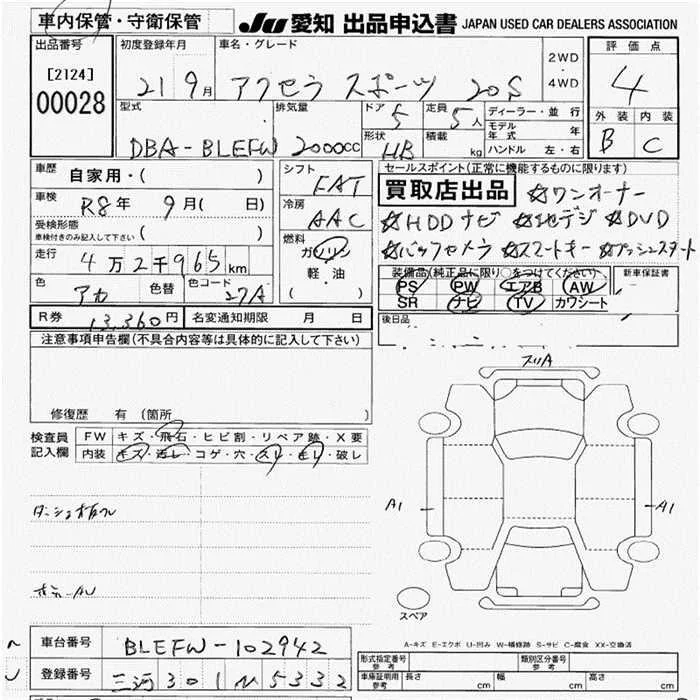 車内保管・守衛保管
JU 愛知 出品申込書 JAPAN USED CAR DEALERS ASSOCIATION
出品番号 初度登録年月 車名・グレード 評価点
[2124] 2WD
00028 21 9月 アクセラ スポーツ 20S ・ 4
4WD
型式 排気量 ドア 5 定員 5人 ディーラー・並行 外装 内装
モデル年式 年 B C
DBA-BLEFW 2000cc 形状 HB 積載 kg ハンドル 左・右
車歴 自家用・( ) シフト FAT セールスポイント(正常に機能するものに限ります)
買取店出品 ☆ワンオーナー
車検 R8年 9月( 日) 冷房 AAC ☆HDDナビ ☆地デジ ☆DVD
受検形態 ( )
車検付きのみ記入して下さい
燃料 ガソリン ☆バックカメラ ☆スマートキー ・プッシュスタート
走行 4万2千965km 軽・油
装備品(純正品に限り○をつけてください) 新車保証書
色 アカ 色替 色コード 27A ( ) PS PW エアB AW
SR ナビ TV カワシート
R券 13,360円 名変通知期限 月 日 後日品
注意事項申告欄(不具合内容等は具体的に記入して下さい)
修復歴 有(箇所
検査員 FW キズ・飛石・ヒビ割・リペア跡・X要
記入欄 内装 キズ・汚レ・コゲ・穴・スリ・モレ・破レ
A1
A1
スペア
A-キズ E-エクボ U-凹み W-補修跡 S-サビ C-腐食 XX-交換済
車台番号 BLEFW-102942
登録番号 三河 301 5332
形式指定番号 参考 類別区分番号 参考
車庫証明用 参考 長さ cm 幅 cm 高さ cm